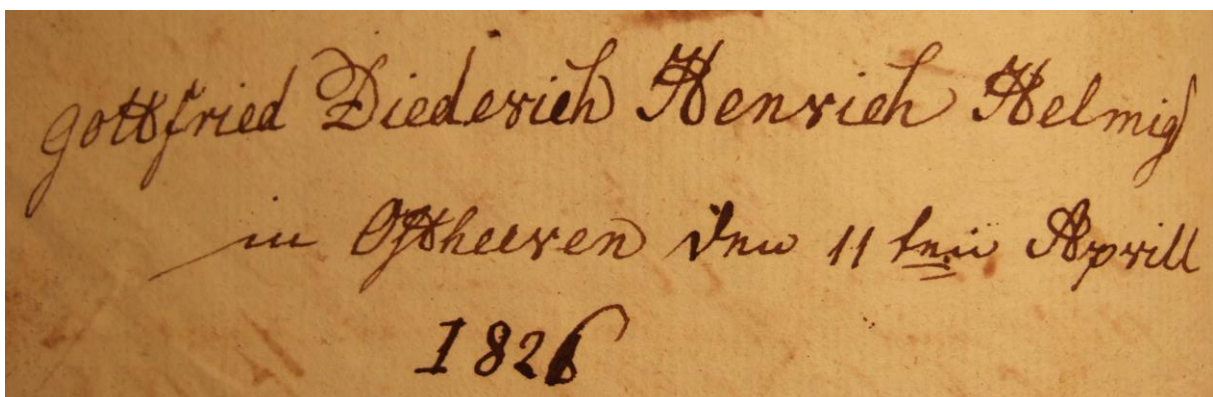 Gottfried Diederich Henrich Helmig
in Ostheeren den 11ten Aprill
1826